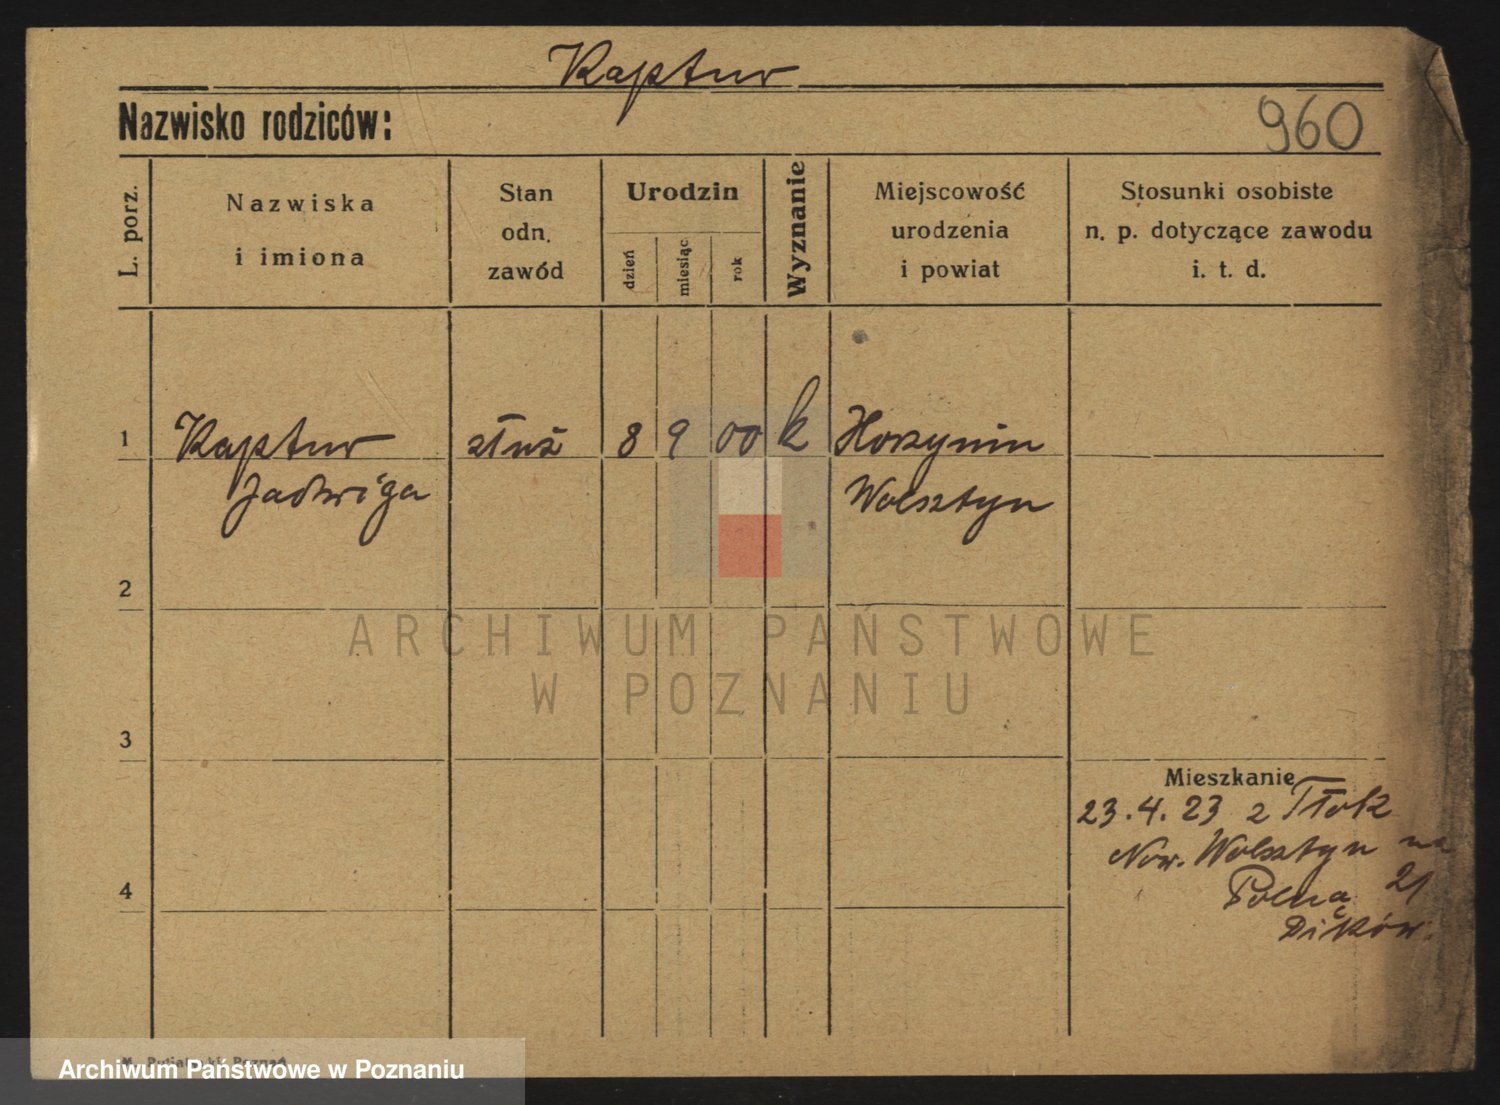 Kaptur
Nazwisko rodziców:
960
L. porz.
Nazwiska
i imiona
Stan
odn.
zawód
Urodzin
dzień
miesiąc
rok
Wyznanie
Miejscowość
urodzenia
i powiat
Stosunki osobiste
n. p. dotyczące zawodu
i. t. d.
1
Kaptur
Jadwiga
służ
8
9
00
k
Wolsztyn
2
ARCHIWUM PAŃSTWOWE
W POZNANIU
3
Mieszkanie
23.4.23 z Tłok
Now. Wolsztyn na
Polną 21
4
Archiwum Państwowe w Poznaniu